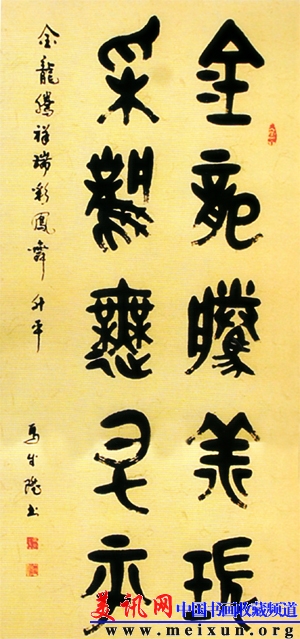 金龍騰祥瑞
采鳳舞升平
金龍騰祥瑞彩鳳舞升平
美讯网
中国书画收藏频道
www.meixun.org